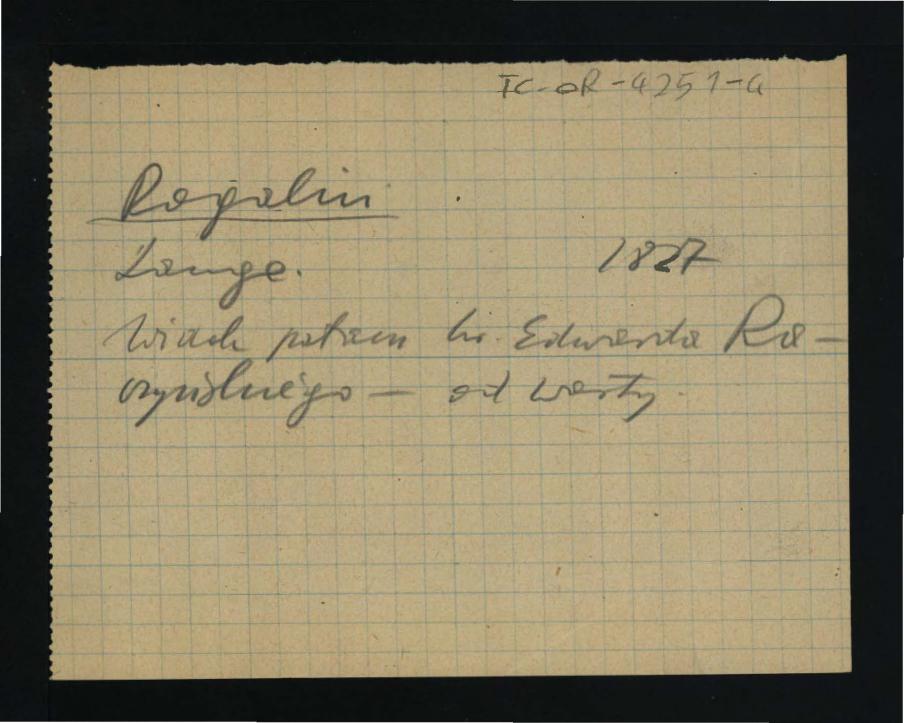 IC-OR-4251-a
Rogalin
Lange. 1827
Widok pałacu hr. Edwarda Ra-
czyńskiego — od Warty